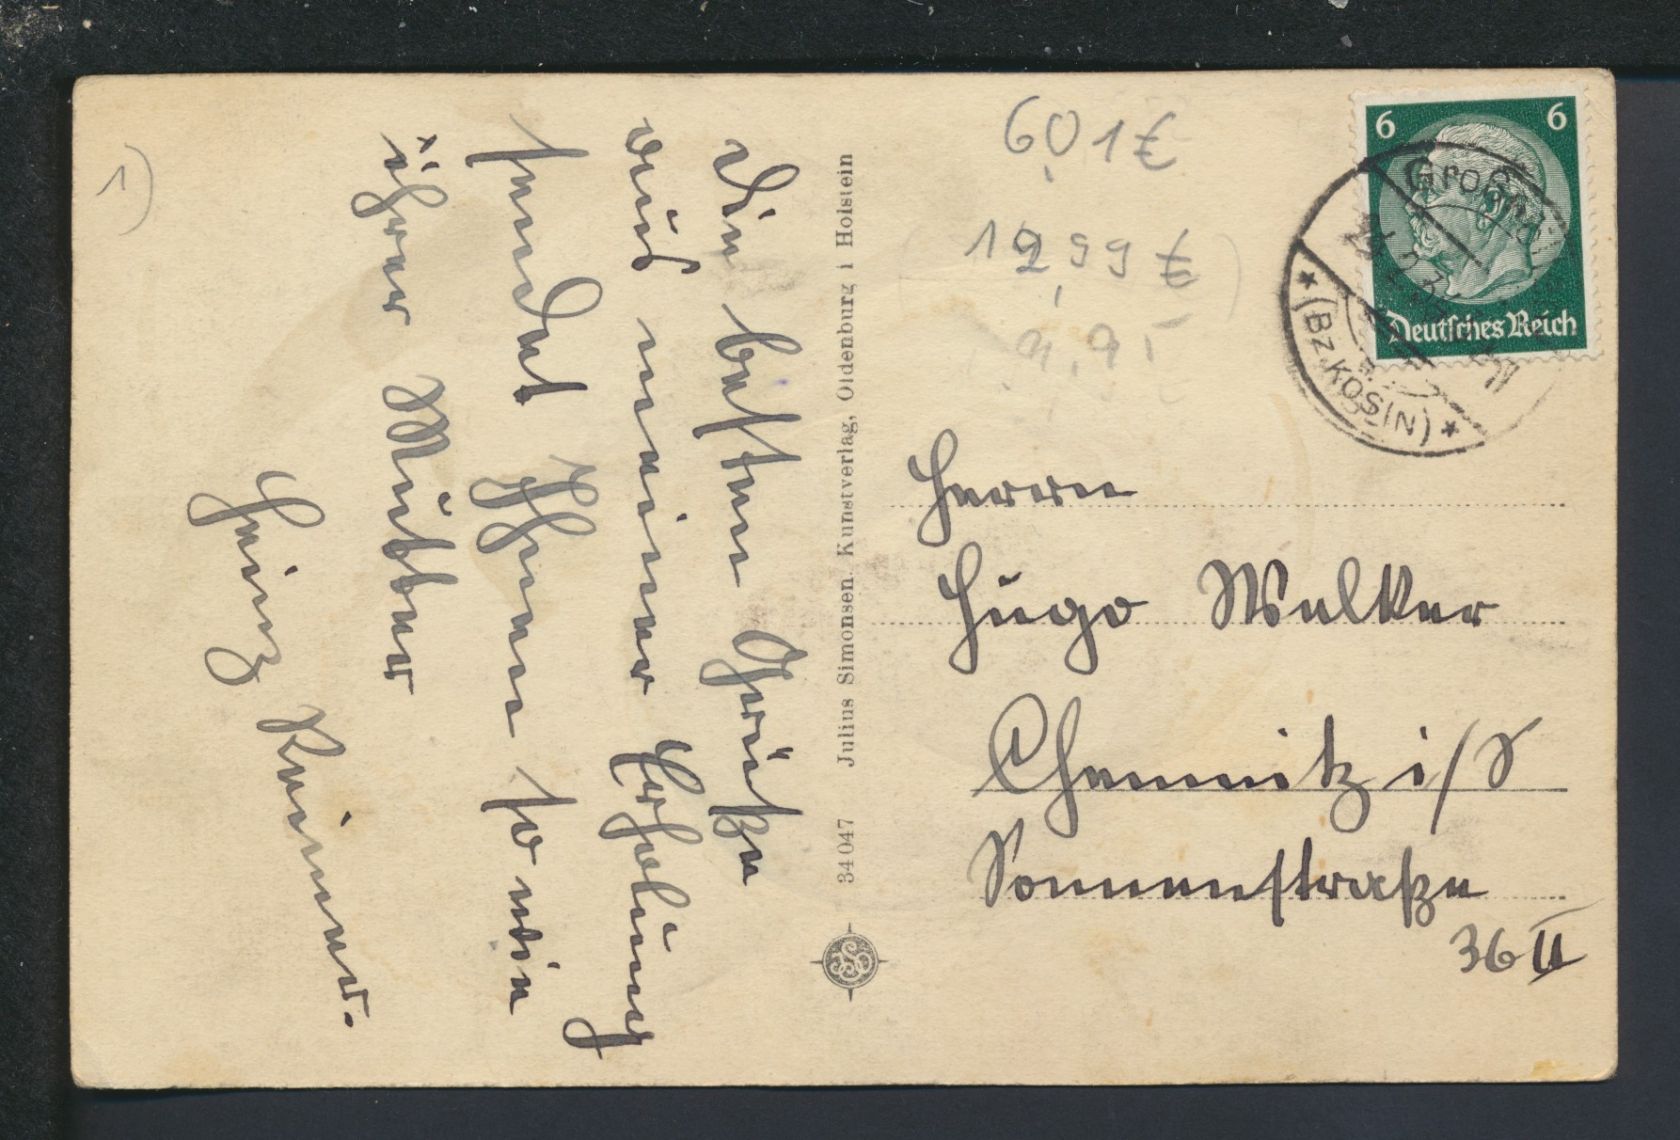 Die besten Grüße
aus meiner Erholung
sendet Ihnen sowie
ihrer Mutter
Heinz Reimer.
34047 Julius Simonsen, Kunstverlag, Oldenburg i Holstein
601€
9,95
6 6
Deutsches Reich
(Bz KÖSLIN)
Herrn
Hugo Welker
Chemnitz i/S
Sonnenstraße
36 II
1)